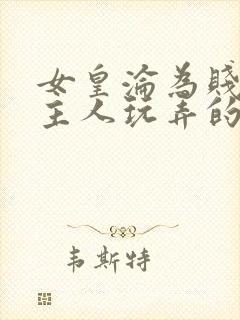 女皇淪為賤
主人玩弄的
韦斯特